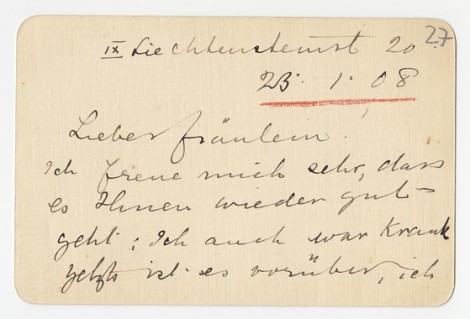 27
IX Liechtensteinst 20
23. 1. 08
Lieber Fräulein!
Ich freue mich sehr, dass
es Ihnen wieder gut
geht; Ich auch war Krank
jetzt ist es vorüber, ich